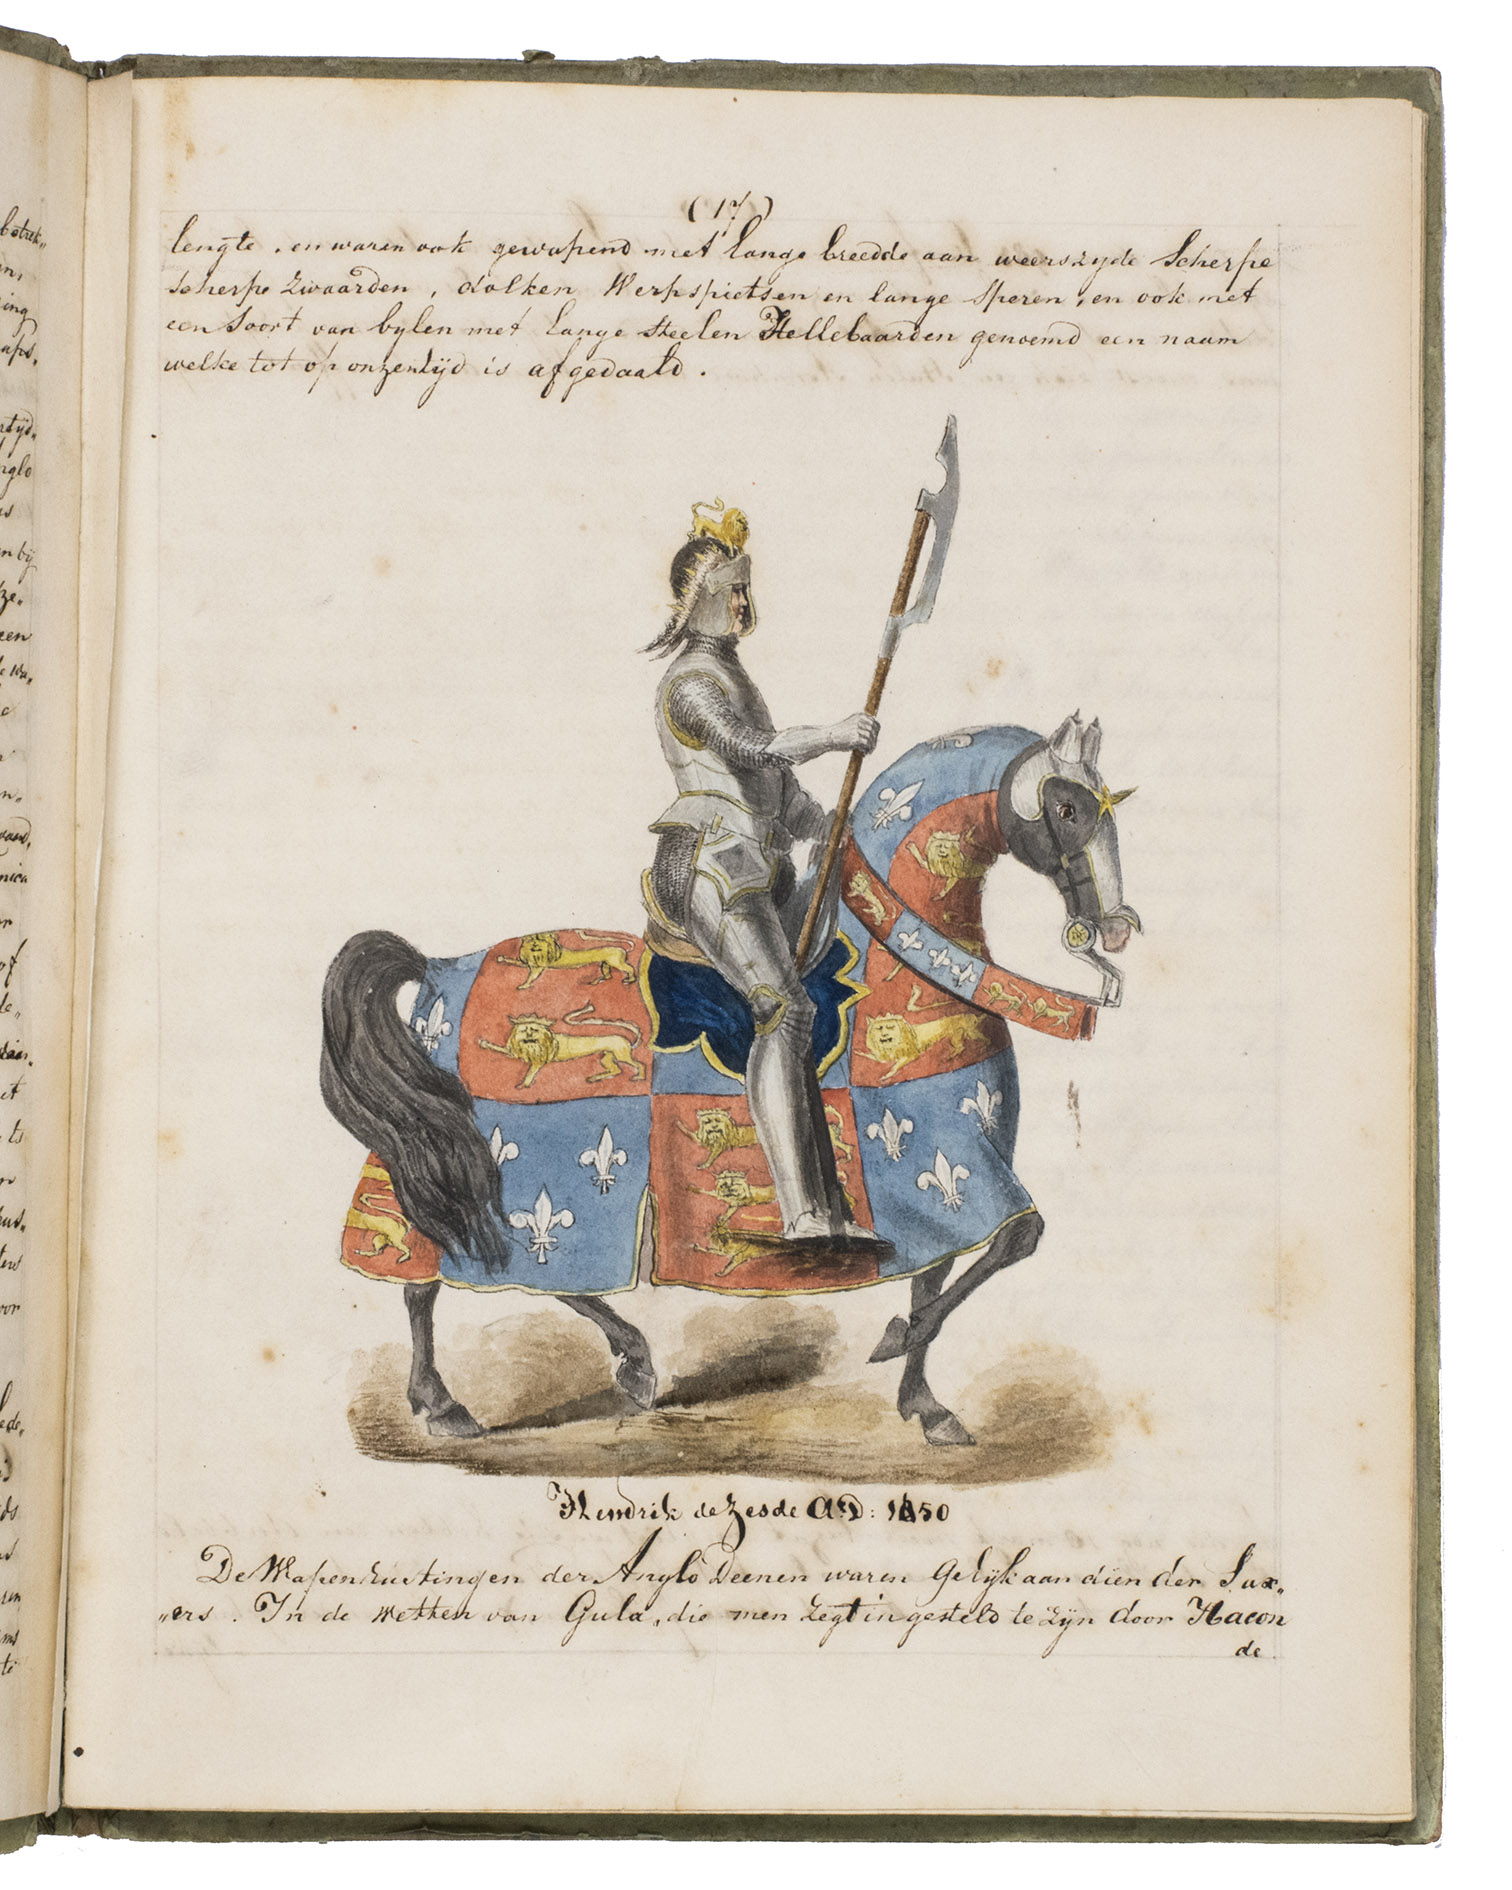 betrek„
en,
ging
aps.
rtijd„
nglo
us
en bij
ze.
een
de wa„
n.
of
de„
et
ts
kus„
ters
oor
ede„
ds
ren
ms
te
(17)
lengte, en waren ook gewapend met lange breedde aan weerszyde Scherpe
scherpe Zwaarden, dolken Werpspietsen en lange Speren, en ook met
een Soort van bylen met lange Steelen Hellebaarden genoemd een naam
welke tot op onzentijd is afgedaald.
Hendrik de Zesde AD: 1450
De Wapenrustingen der Anglo Deenen waren Gelijk aan dien der Sax„
„ers. In de wetten van Gula, die men zegt ingesteld te zijn door Hacon
de